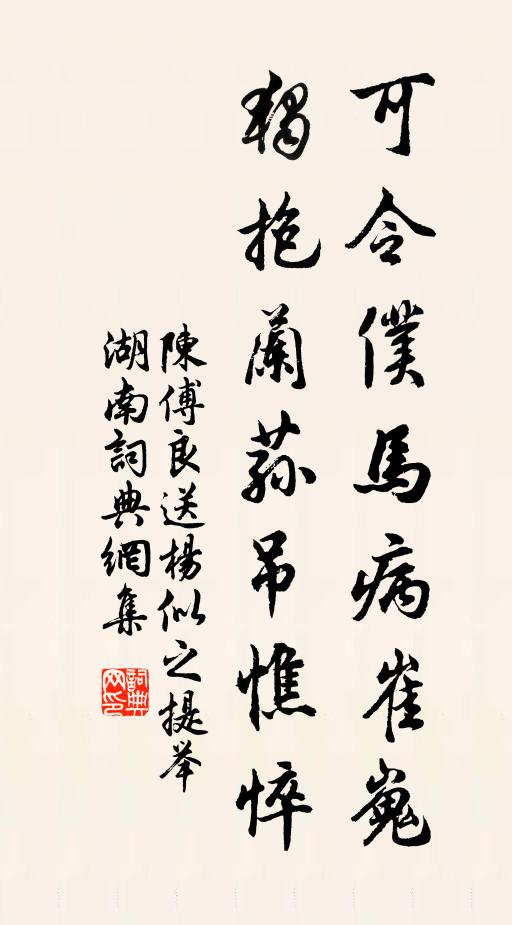 可令僕馬病崔嵬
獨抱蘭蓀吊憔悴
陳傅良送楊似之提举
湖南詞典網集
詞典网印